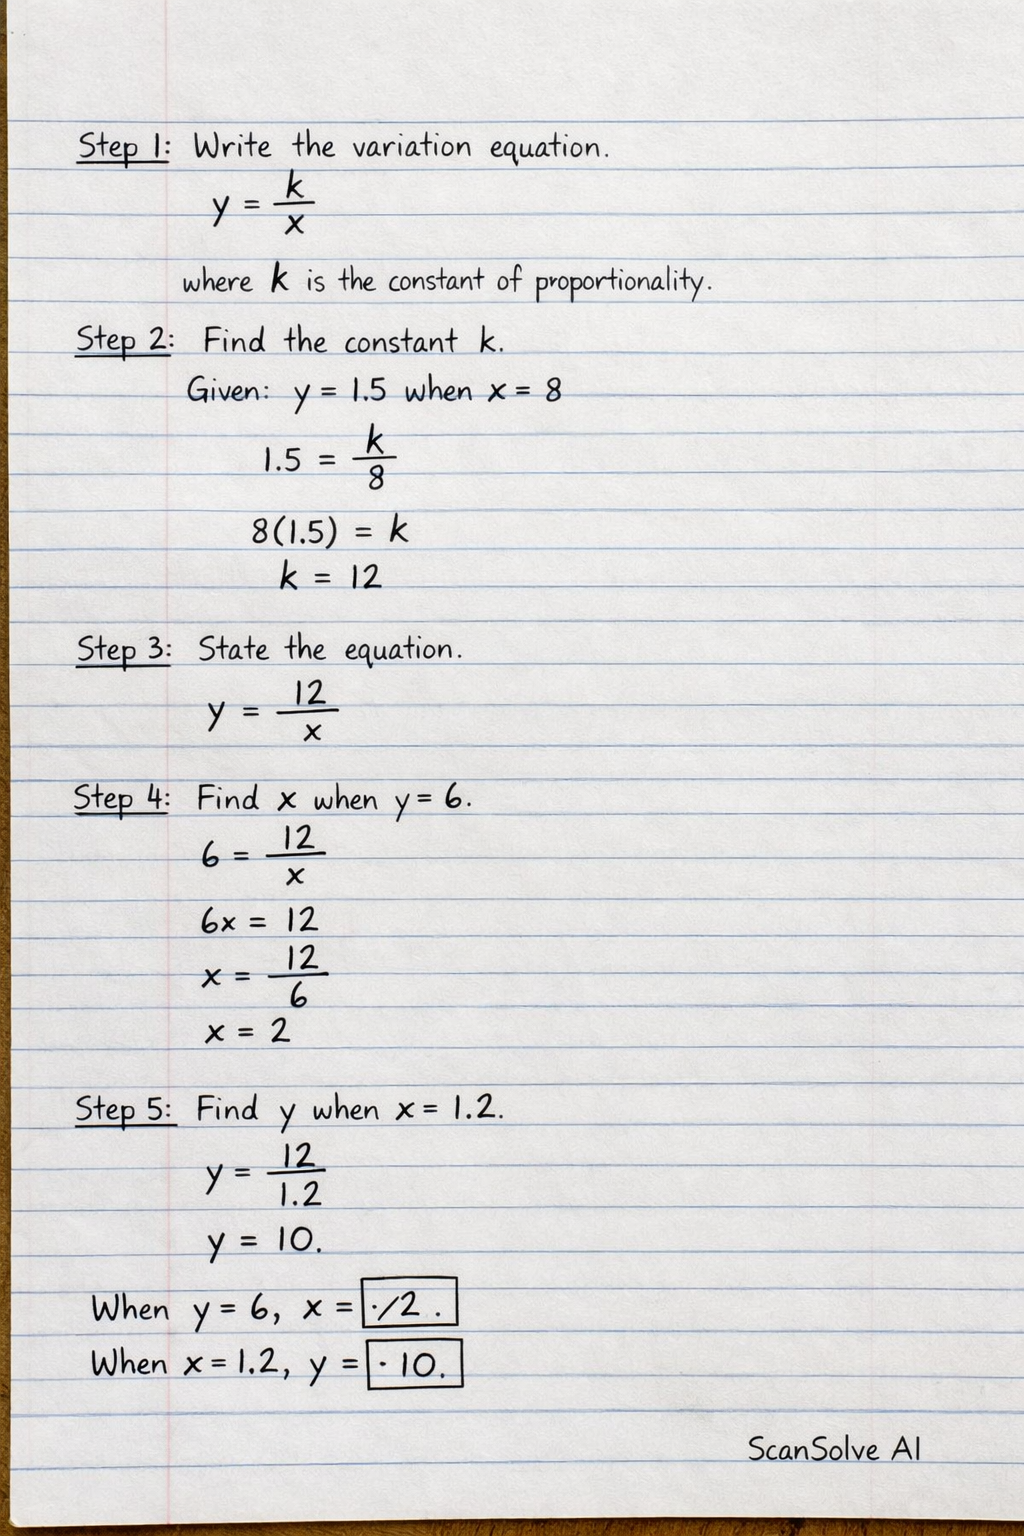 Step 1: Write the variation equation.
y = k/x
where k is the constant of proportionality.
Step 2: Find the constant k.
Given: y = 1.5 when x = 8
1.5 = k/8
8(1.5) = k
k = 12
Step 3: State the equation.
y = 12/x
Step 4: Find x when y = 6.
6 = 12/x
6x = 12
x = 12/6
x = 2
Step 5: Find y when x = 1.2.
y = 12/1.2
y = 10.
When y = 6, x = ·/2 .
When x = 1.2, y = · 10.
ScanSolve AI